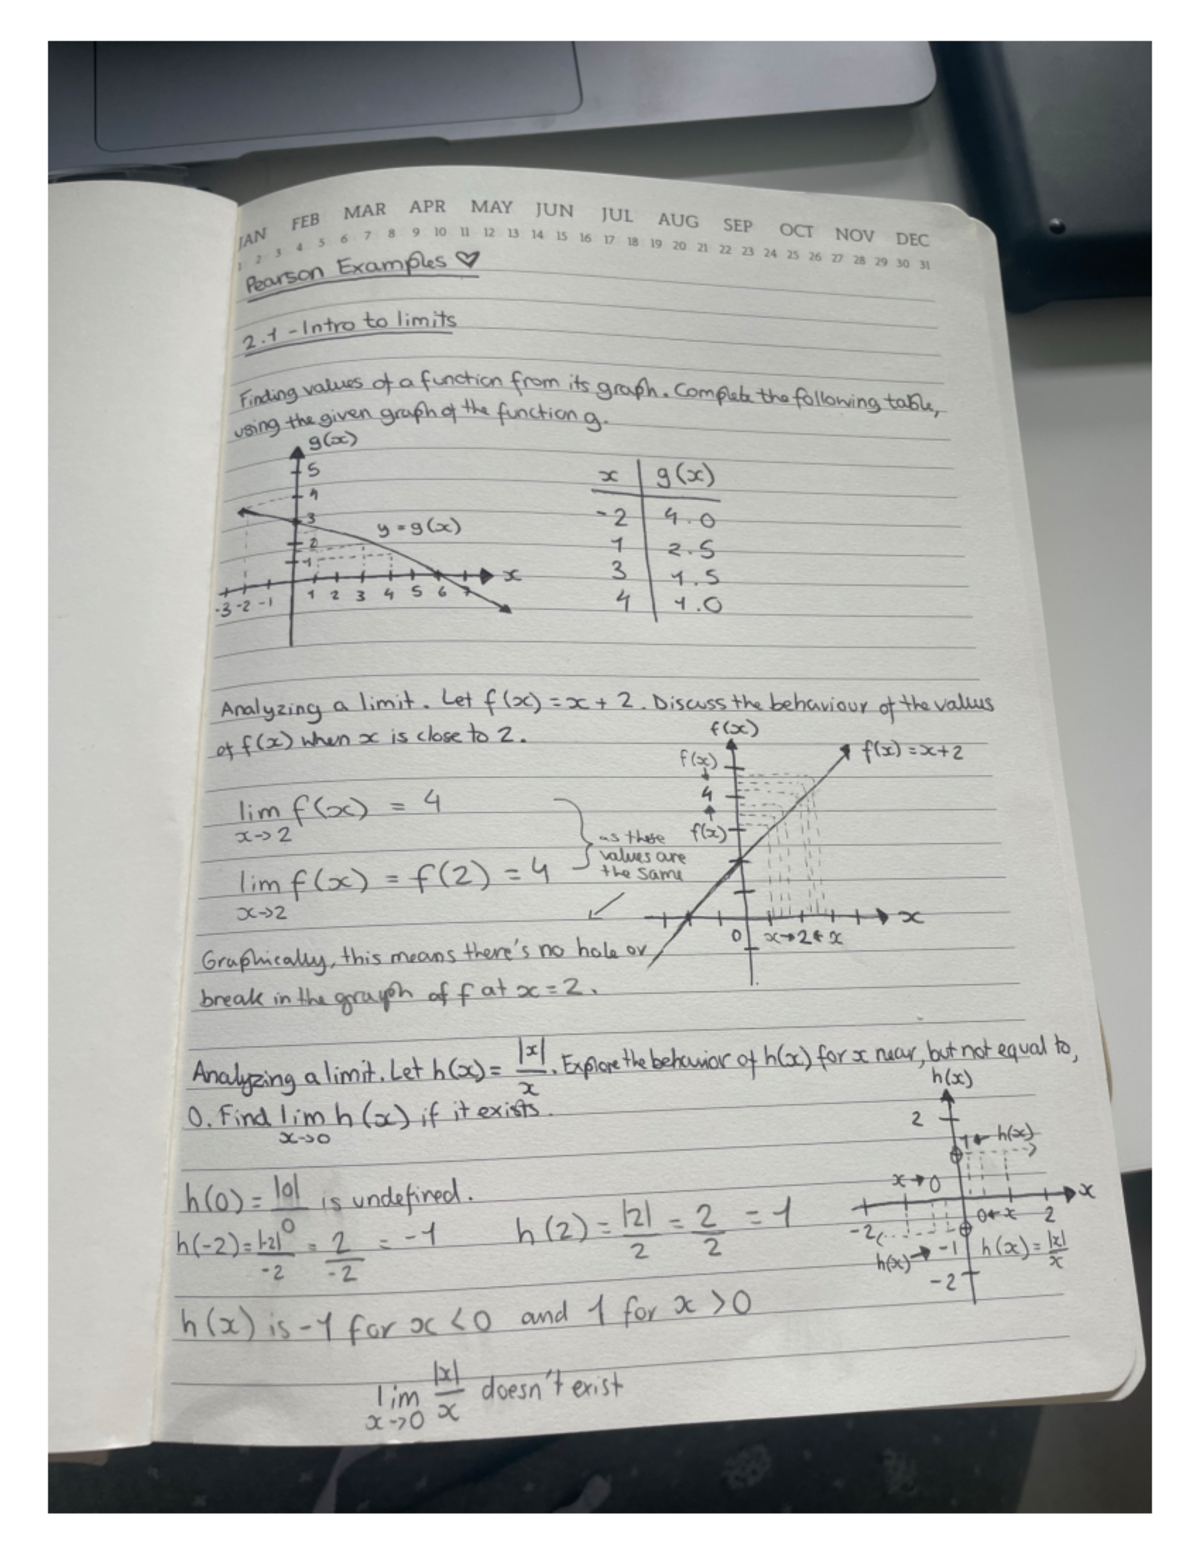 JAN FEB MAR APR MAY JUN JUL AUG SEP OCT NOV DEC
1 2 3 4 5 6 7 8 9 10 11 12 13 14 15 16 17 18 19 20 21 22 23 24 25 26 27 28 29 30 31
Pearson Examples ♡
2.1 - Intro to limits
Finding values of a function from its graph. Complete the following table,
using the given graph of the function g.
g(x)
5
4
3
2
1
y = g(x)
x
-3 -2 -1 1 2 3 4 5 6 7
x | g(x)
-2 | 4.0
1 | 2.5
3 | 1.5
4 | 1.0
Analyzing a limit. Let f(x) = x + 2. Discuss the behaviour of the values
of f(x) when x is close to 2.
f(x)
f(x) = x+2
f(x)
↓
4
↑
f(x)
x
0 x→2←x
lim f(x) = 4
x→2
lim f(x) = f(2) = 4
x→2
as these
values are
the same
Graphically, this means there's no hole or
break in the graph of f at x = 2.
Analyzing a limit. Let h(x) = |x|/x. Explore the behavior of h(x) for x near, but not equal to,
0. Find lim h(x) if it exists.
x→0
h(x)
2
1 ← h(x)
x→0
x
-2 0←x 2
h(x)→ -1 h(x) = |x|/x
-2
h(0) = |0|/0 is undefined.
h(-2) = |-2|/-2 = 2/-2 = -1 h(2) = |2|/2 = 2/2 = 1
h(x) is -1 for x < 0 and 1 for x > 0
lim |x|/x doesn't exist
x→0